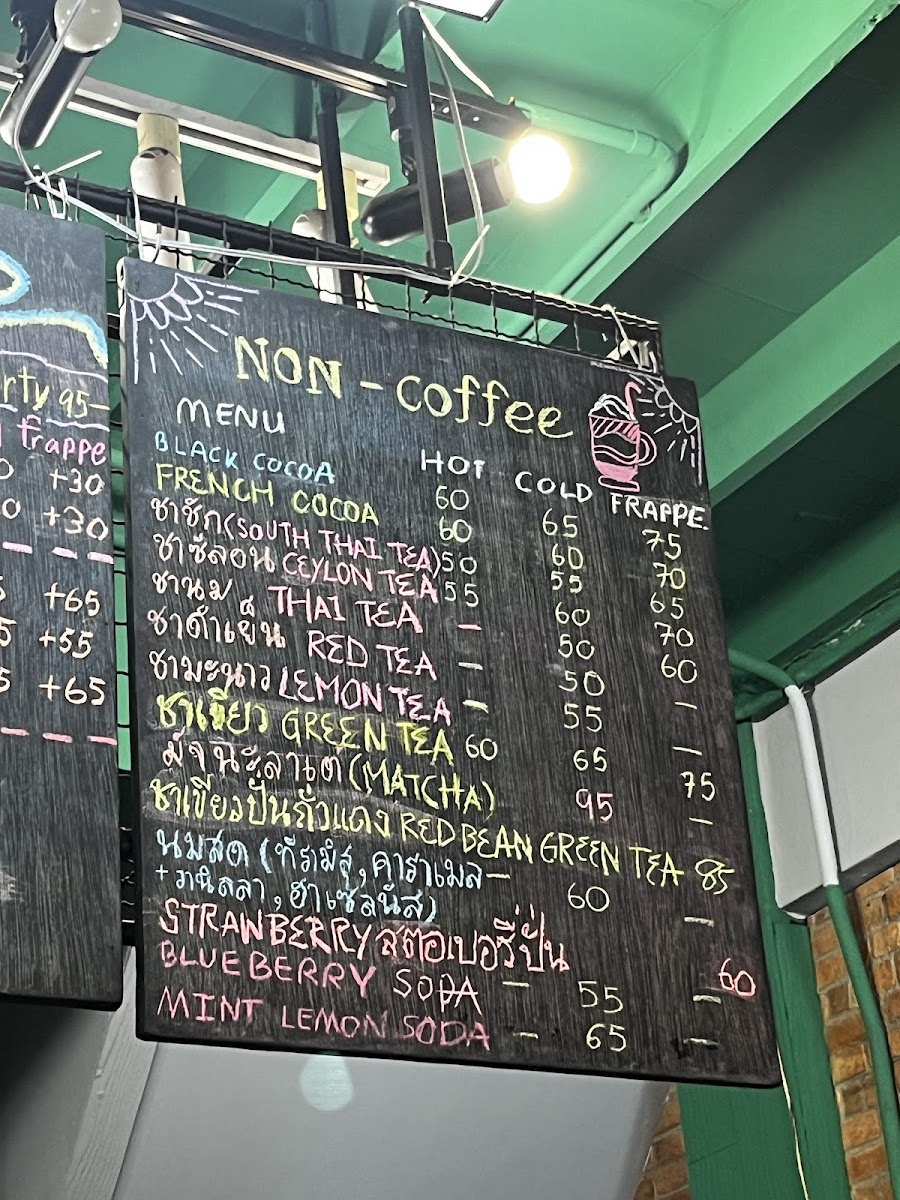 NON - Coffee
MENU HOT COLD FRAPPE.
BLACK COCOA 60 65 75
FRENCH COCOA 60 60 70
ชาชัก (SOUTH THAI TEA) 50 55 65
ชาซีลอน CEYLON TEA 55 60 70
ชานม THAI TEA – 50 60
ชาดำเย็น RED TEA – 50 –
ชามะนาว LEMON TEA – 55 –
ชาเขียว GREEN TEA 60 65 75
มัจฉะลาเต้ (MATCHA) 95 –
ชาเขียวปั่นถั่วแดง RED BEAN GREEN TEA 85
นมสด (ทีรามิสุ, คาราเมล – 60 –
+ วานิลลา, ฮาเซลนัส)
STRAWBERRY สตอเบอรี่ปั่น 60
BLUEBERRY SODA – 55 –
MINT LEMON SODA – 65 –
rty 95-
frappe
+30
+30
+65
+55
+65